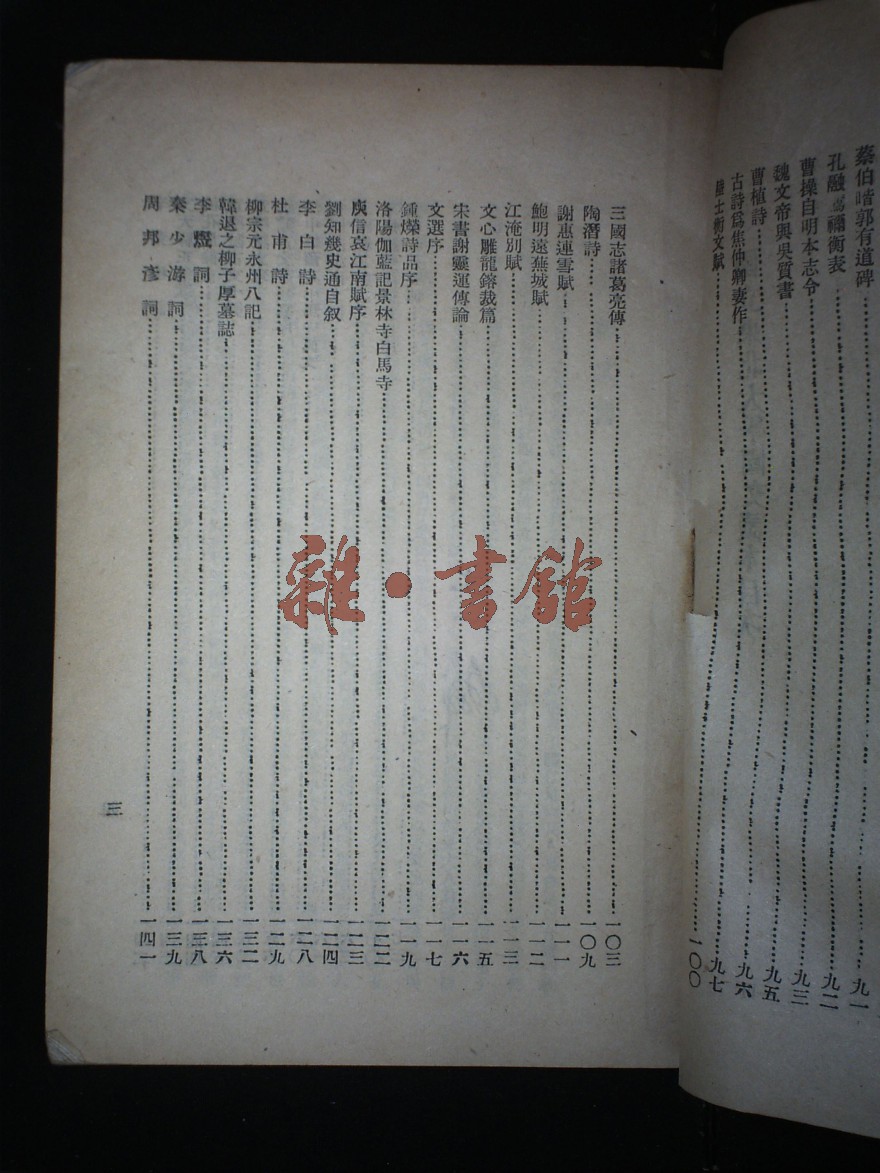 蔡伯喈郭有道碑……九一
孔融薦禰衡表……九二
曹操自明本志令……九三
魏文帝與吳質書……九五
曹植詩……九六
古詩爲焦仲卿妻作……九七
陸士衡文賦……一〇〇
三國志諸葛亮傳……一〇三
陶潛詩……一〇九
謝惠連雪賦……一一一
鮑明遠蕪城賦……一一二
江淹別賦……一一三
文心雕龍鎔裁篇……一一五
宋書謝靈運傳論……一一六
文選序……一一七
鍾嶸詩品序……一一九
洛陽伽藍記景林寺白馬寺……一二二
庾信哀江南賦序……一二三
劉知幾史通自叙……一二四
李白詩……一二八
杜甫詩……一二九
柳宗元永州八記……一三二
韓退之柳子厚墓誌……一三六
李煜詞……一三八
秦少游詞……一三九
周邦彥詞……一四一
三
雜·書館